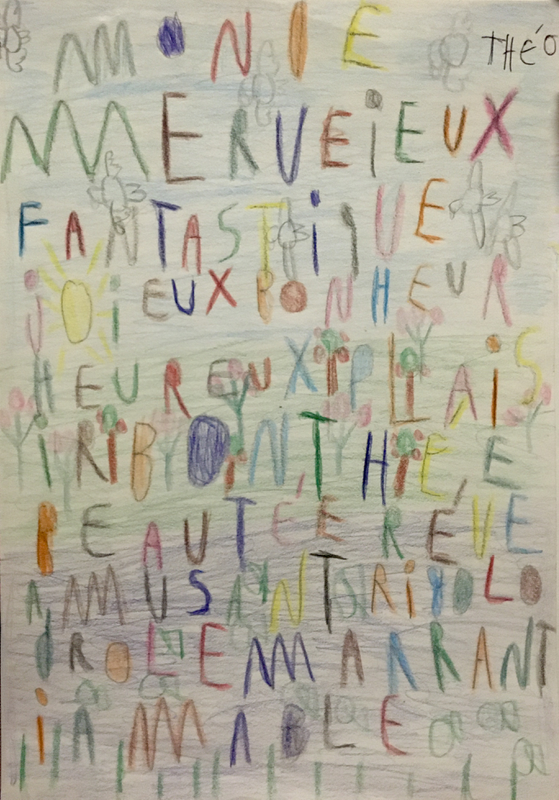 MONIE THÉO
MERVEiEUX
FANTASTiQUE
JOiEUX BONHEUR
HEUREUX PLAiS
iR BONTHÉE
BEAUTÉE RÉVE
AMUSANT RiGOLO
DROLE MARRANT
iAMABLE